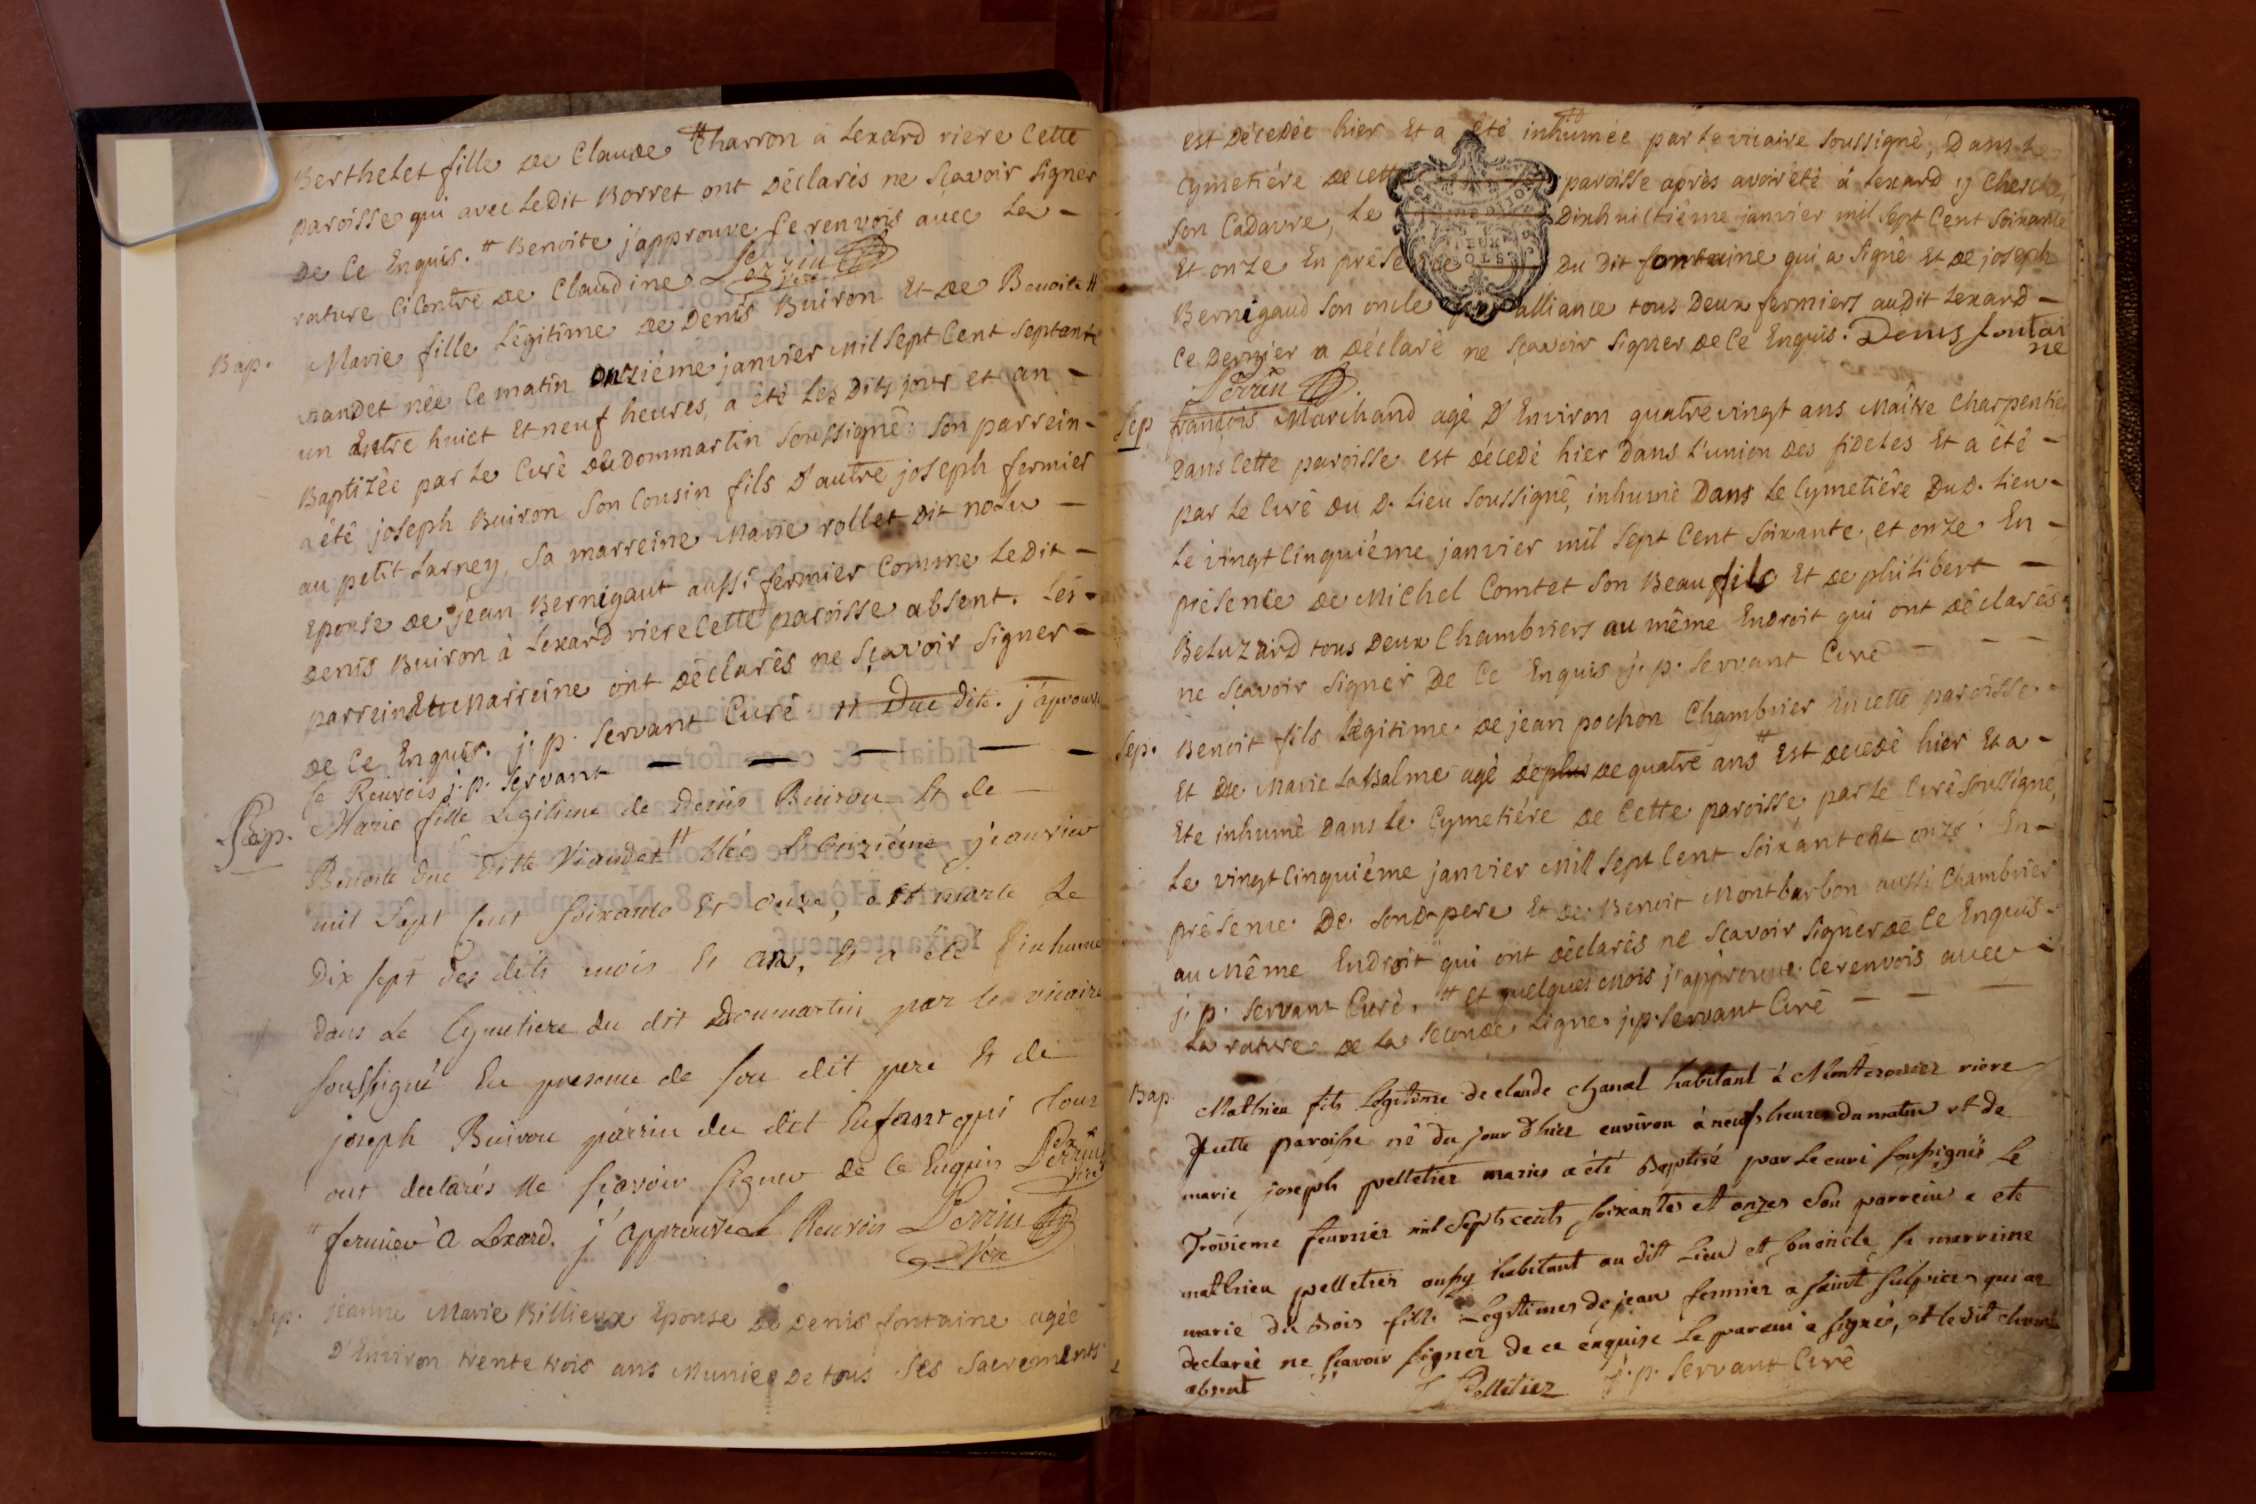 Berthelet fille de Claude Charron a Lexard riere Cette
paroisse qui avec ledit Borret ont Déclarés ne sçavoir signer
de Ce Enquis. # Benoite j'approuve le renvois avec la
rature Ci Contre de Claudine Perrin
Bap. Marie fille Légitime de Denis Buiron Et de Benoite #
viandet née Ce matin onziéme janvier Mil Sept Cent septante
un Entre huict Et neuf heures, a été les Dits jour et an
Baptizée par Le Curé de dommartin Soussigné. Son parrein
a été joseph Buiron Son Cousin fils D'autre joseph fermier
au petit Larney, Sa marreine Marie rollet Dit nolu
Epouse de jean Bernigaut aussi fermier Comme Ledit
Denis Buiron à Lexard riere Cette paroisse absent. Les
parrein Et Marreine ont Déclarés ne sçavoir signer
de Ce Enquis. j. p. Servant Curé # Duc Dite. j'aprouve
le Renvois j. p. Servant
Sep. Marie fille Legitime de Denis Buiron Et de
Benoite duc ditte Viandet # Née L'onziéme janvier
mil Sept Cent Soixante Et onze, est morte Le
Dix sept des dits mois Et an, Et a été inhumé
dans Le Cymetiere du dit Dommartin par le vicaire
soussigné En presence de Son dit pere Et de
joseph Buiron parrin du dit Enfant qui tous
ont declarés Ne sçavoir signer de Ce Enquis Perrin vire
# fermier a Lexard. j'approuve Le Renvois Perrin
Vire
Sep. jeanne Marie Billieux Epouse De Denis fontaine agée
D'Environ trente trois ans Muniee De tous Ses Sacrements
est Décedée hier Et a été inhumée par Le vicaire Soussigné, Dans le
Cymetiére de cette paroisse aprés avoir été à Lexard y Chercher
Son Cadavre, Le Dixhuictiéme janvier mil Sept Cent Soixante
Et onze En présence Du Dit fontaine qui a Signé Et de joseph
Bernigaud Son oncle par alliance tous Deux fermiers audit Lexard
Ce Dernier a Déclaré ne sçavoir signer de Ce Enquis. Denis fontai
ne
Perrin
Sep françois Marchand agé D'Environ quatre vingt ans Maître Charpentier
Dans Cette paroisse est décedé hier Dans L'union Des fideles Et a été
par Le Curé Du D. Lieu Soussigné, inhumé Dans Le Cymetiére Du D. Lieu
Le vingt Cinquiéme janvier mil Sept Cent Soixante et onze En
présence de Michel Comtet Son Beaufils Et de philibert
Beluzard tous Deux Chambriers au même Endroit qui ont déclarés
ne sçavoir signer De Ce Enquis j. p. Servant Curé
Sep. Benoit fils Légitime de jean pochon Chambrier En cette paroisse
Et De Marie Lassalme agé de plus de quatre ans # Est decedé hier Et a
Ete inhumé Dans Le Cymetiére de Cette paroisse par Le Curé Soussigné,
Le vingt Cinquiéme janvier Mil Sept Cent Soixante Et onze. En
présence De Son D. pere Et De Benoit Montbarbon aussi Chambrier
au Même Endroit qui ont déclarés ne sçavoir signer de Ce Enquis
j. p. Servant Curé. # et quelques Mois j'approuve Ce renvois avec
La rature de la seconde Ligne j. p. Servant Curé
Bap. Mathieu fils Legitime de claude chanal habitant à riere
cette paroisse né du jour d'hier environ à neufs heures du matin et de
marie joseph pelletier mariés a été Baptisé par le curé soussignés Le
Troisieme feuvrier mil Septs cents soixantes et onzes Son parrein a ete
mathieu pelletier aussy habitant au dit Lieu et son oncle, sa marreine
marie du Bois fille Legitimes de jean fermier a saint sulpices qui a
declareé ne sçavoir signer de ce enquise Le parein a signés, et le dit chanal
absent Pelletier j. p. Servant Curé